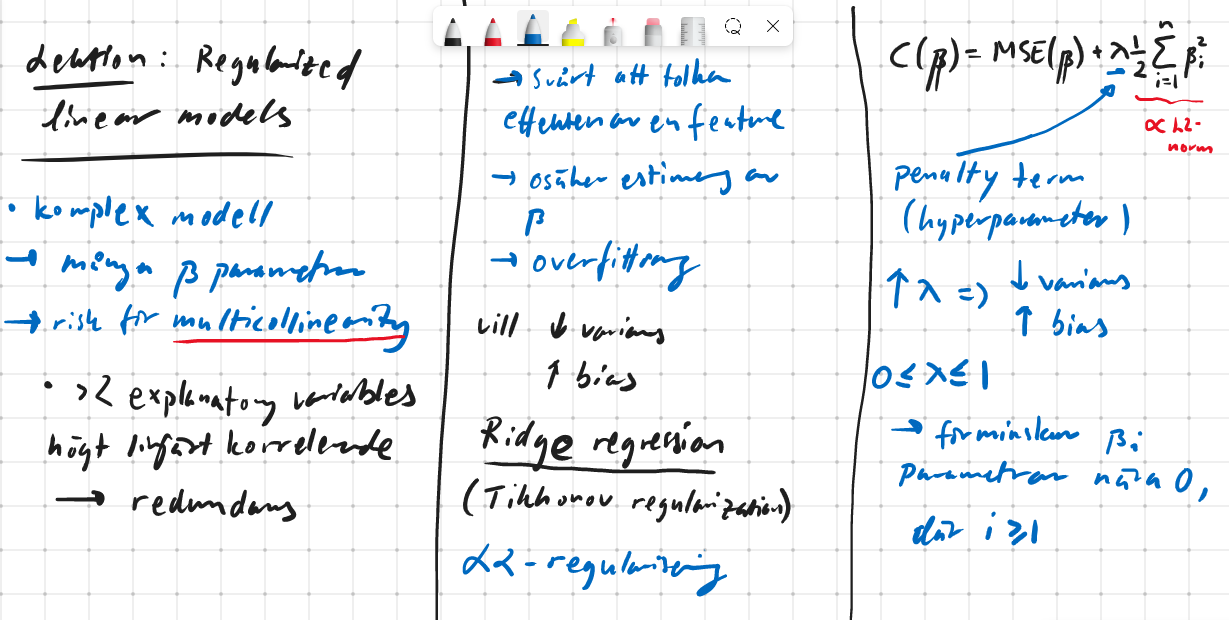 Lektion: Regularized
linear models
• komplex modell
→ många β parametrar
→ risk för multicollinearity
• >2 explanatory variables
högt linjärt korrelerade
→ redundans
→ svårt att tolka
effekten av en feature
→ osäker estimering av
β
→ overfitting
vill ↓ varians
↑ bias
Ridge regression
(Tikhonov regularization)
L2-regularisering
C(β) = MSE(β) + λ 1/2 Σ_{i=1}^{n} β_i^2
∝ L2-
norm
penalty term
(hyperparameter)
↑ λ => ↓ varians
↑ bias
0 ≤ λ ≤ 1
→ förminskar β_i
parametrar nära 0,
där i ≥ 1